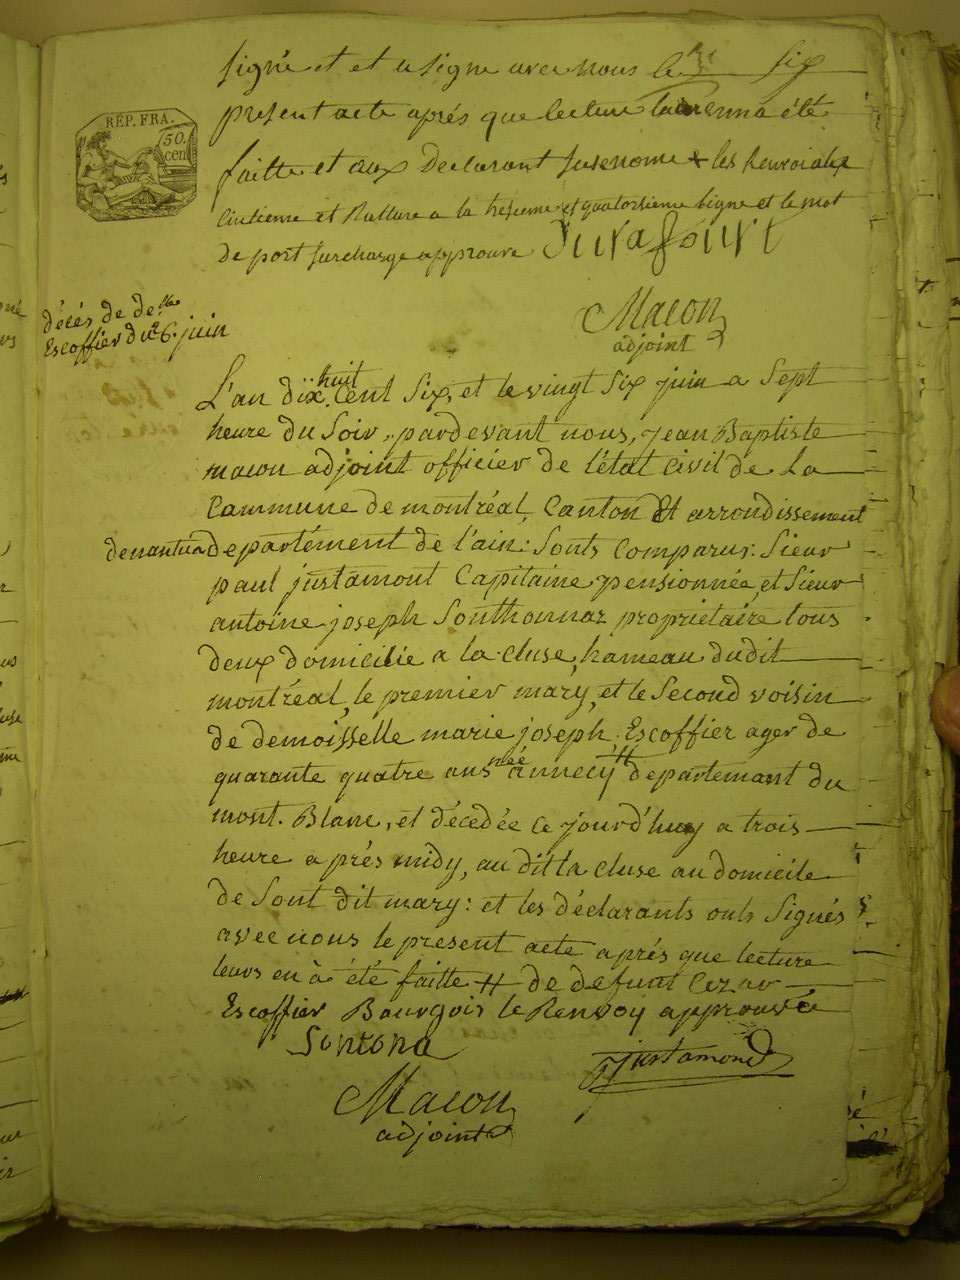 signé et et a signe avec nous le six
present acte aprés que lecture en a été
faitte et aux Declarant susnomé les Renvoi alex
Cintieme et Rallure a la tresieme et quatorsieme ligne et le mot
de port surcharge approuvé
REP. FRA.
50.
cent
Macon
adjoint
décés de de.lle
Escoffier du 26. juin
L'an dix huit Cent Six, et le vingt Six juin a Sept
heure du Soir, pardevant nous, Jean Baptiste
macon adjoint officier de l'état Civil de La
Commune de montréal, Canton Et arrondissement
denantua departément de l'ain: Sonts Comparus: Sieur
paul justamont Capitaine, pensionnée, et Sieur
antoine joseph Sonthonnaz propriétaire tous
deux domicilie a la cluse, hameau dudit
montréal, le premier mary, et le Second voisin
de demoisselle marie joseph Escoffier ager de
quarante quatre ans née annecÿ # departemant du
mont. Blanc, et décedée Ce jourd'huy a trois
heure aprés midy, au dit la cluse au domicile
de Sont dit mary: et les déclarants onts Signés
avec nous le present acte aprés que lecture
leurs en à été faitte # de defunt Cezar
Escoffier Bourgois le Renvoy approuvée
Sontona
Justamond
Macon
adjoint